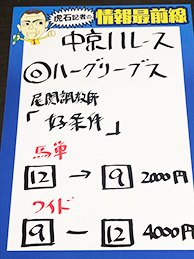 虎石記者の情報最前線
中京11レース
◎ハーグリーブス
尾関調教師
「好条件」
馬単
12 → 9 2000円
ワイド
9 - 12 4000円